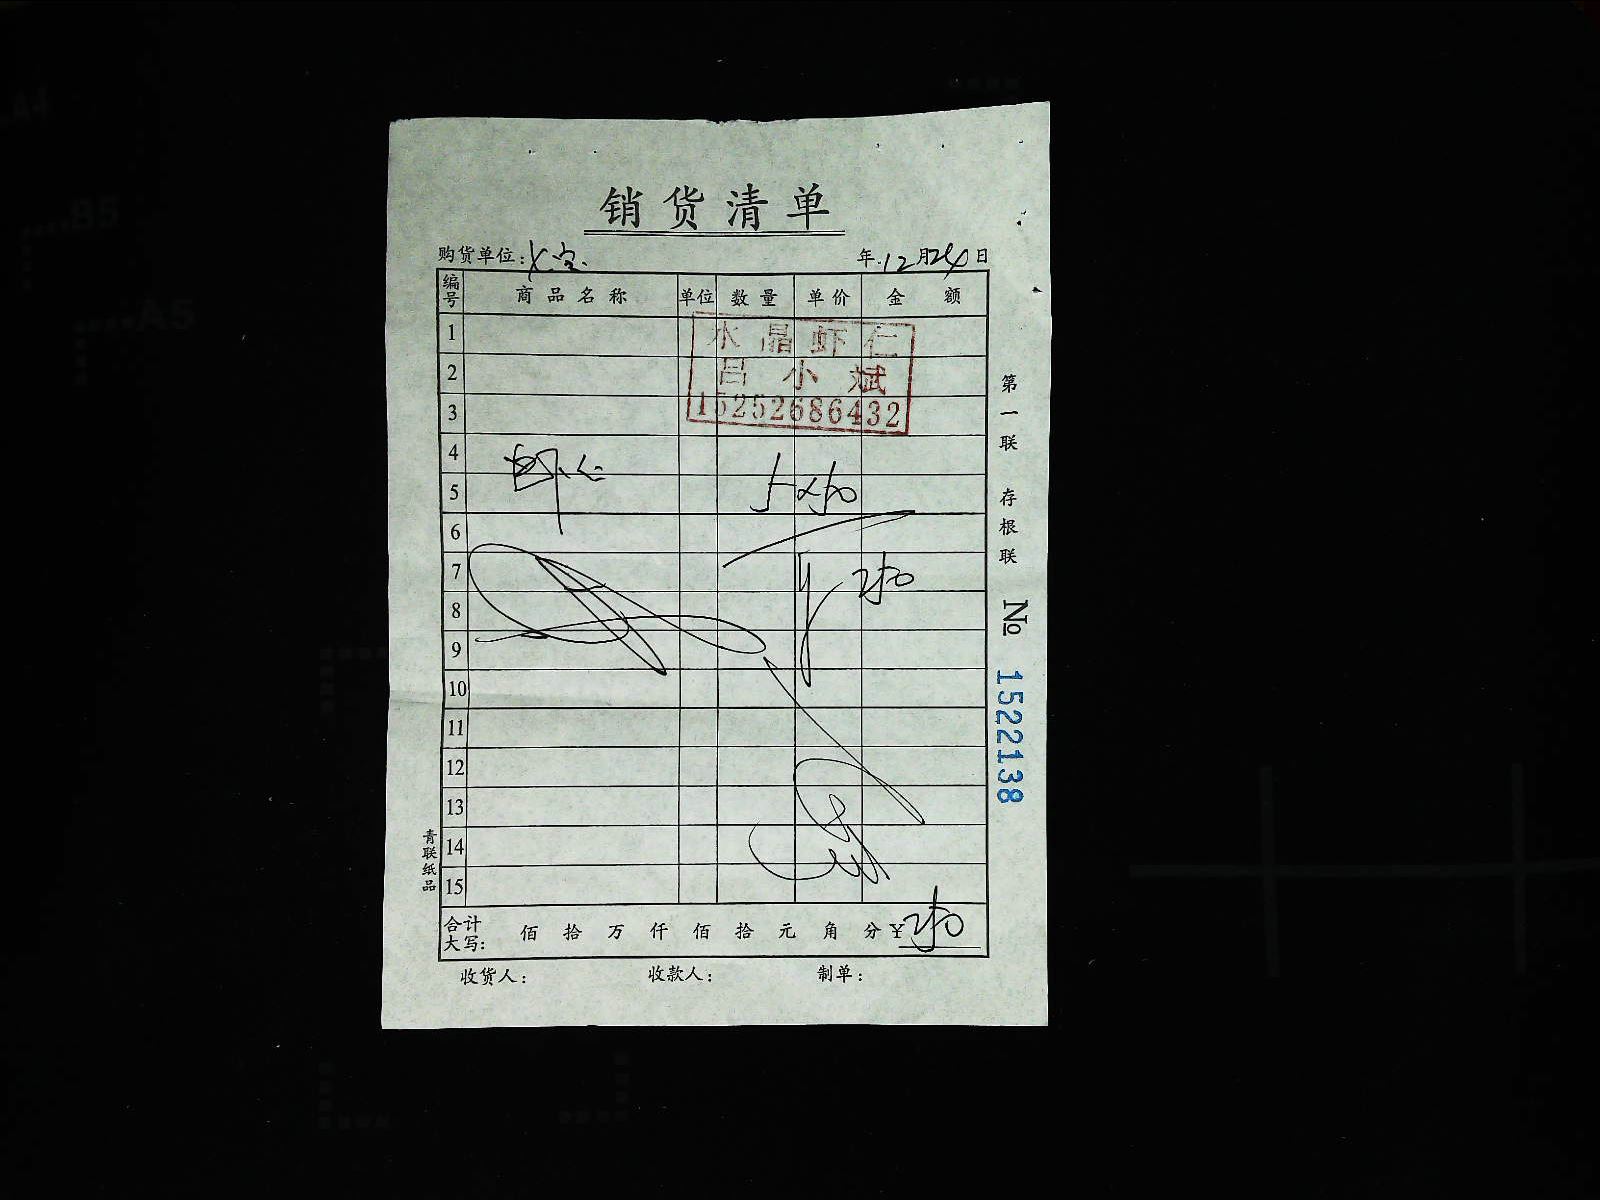 销货清单
购货单位: 年12月24日
编号 商品名称 单位 数量 单价 金额
1
水晶虾仁
2
吕小斌
3
15252686432
4
虾仁
5 5×50
6
7 250
8
9
10
11
12
13
14
15
合计大写: 佰 拾 万 仟 佰 拾 元 角 分 ¥250
收货人: 收款人: 制单:
第一联 存根联 № 1522138
青联纸品
A4
B5
A5